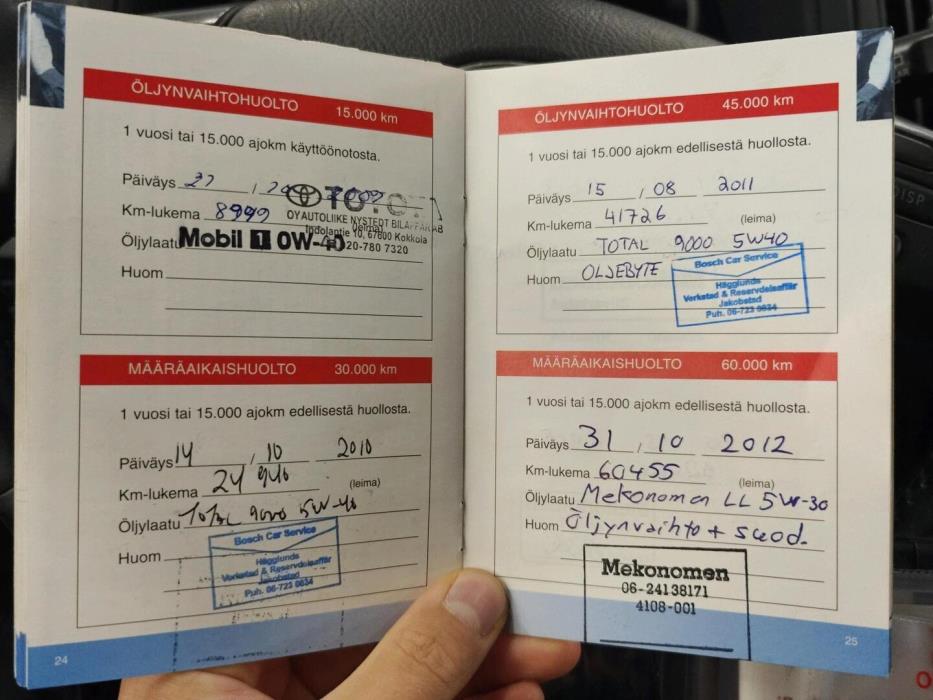 ÖLJYNVAIHTOHUOLTO 15.000 km
1 vuosi tai 15.000 ajokm käyttöönotosta.
Päiväys 27 / 2009
TOYOTA
Km-lukema 8999
OY AUTOLIIKE NYSTEDT BILAFFÄR AB
(leima)
Indolantie 10, 67600 Kokkola
Öljylaatu Mobil 1 0W-40 020-780 7320
Huom
MÄÄRÄAIKAISHUOLTO 30.000 km
1 vuosi tai 15.000 ajokm edellisestä huollosta.
Päiväys 14 / 10 2010
Km-lukema 24 940
(leima)
Öljylaatu Total 9000 5W-40
Huom
Bosch Car Service
Hägglunds
Verkstad & Reservdelsaffär
Jakobstad
Puh. 06-723 0634
24
ÖLJYNVAIHTOHUOLTO 45.000 km
1 vuosi tai 15.000 ajokm edellisestä huollosta.
Päiväys 15 / 08 2011
Km-lukema 41726 (leima)
Öljylaatu TOTAL 9000 5W40
Huom OLJEBYTE
Bosch Car Service
Hägglunds
Verkstad & Reservdelsaffär
Jakobstad
Puh. 06-723 0634
MÄÄRÄAIKAISHUOLTO 60.000 km
1 vuosi tai 15.000 ajokm edellisestä huollosta.
Päiväys 31 / 10 2012
Km-lukema 60455 (leima)
Öljylaatu Mekonomen LL 5W-30
Huom Öljynvaihto + suod.
Mekonomen
06-24138171
4108-001
25
DISP